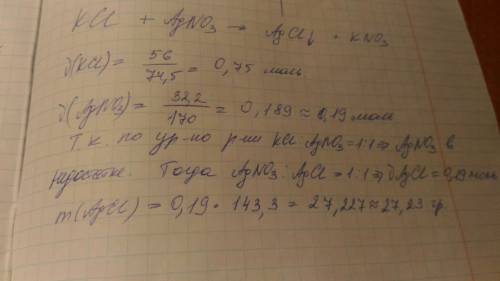 KCl + AgNO₃ → AgCl↓ + KNO₃
ν(KCl) = 56/74,5 = 0,75 моль
ν(AgNO₃) = 32,2/170 = 0,189 ≈ 0,19 моль
Т.к. по ур-ю р-ии KCl AgNO₃ = 1:1 ⇒ AgNO₃ в
недостатке. Тогда AgNO₃ : AgCl = 1:1 ⇒ νAgCl = 0,19 моль
m(AgCl) = 0,19 · 143,3 = 27,227 ≈ 27,23 гр.